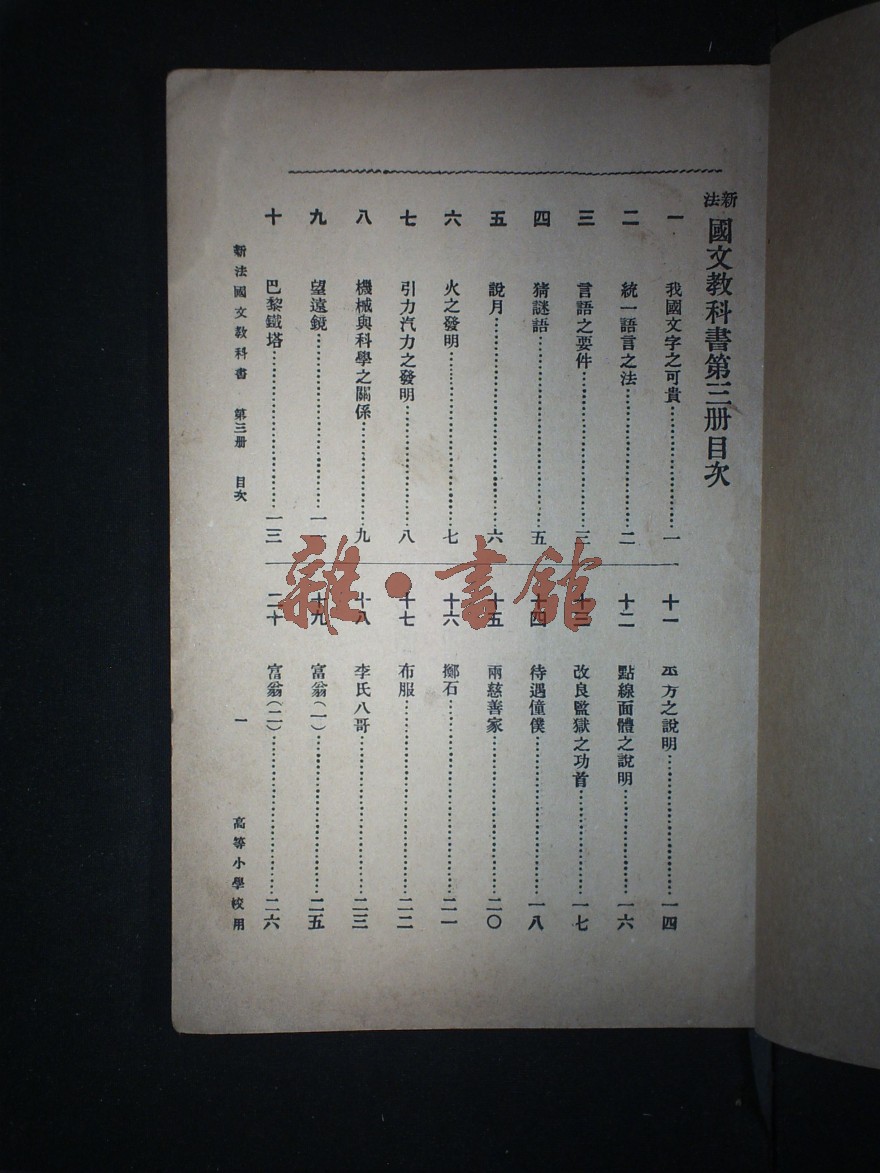 新法國文教科書第三册目次
一 我國文字之可貴……一
二 統一語言之法……二
三 言語之要件……三
四 猜謎語……五
五 說月……六
六 火之發明……七
七 引力汽力之發明……八
八 機械與科學之關係……九
九 望遠鏡……
十 巴黎鐵塔……一三
十一 方之說明……一四
十二 點線面體之說明……一六
十三 改良監獄之功首……一七
十四 待遇僮僕……一八
十五 兩慈善家……二〇
十六 擲石……二一
十七 布服……二二
十八 李氏八哥……二三
十九 富翁(一)……二五
二十 富翁(二)……二六
新法國文教科書 第三册 目次 一 高等小學校用
雜·書館